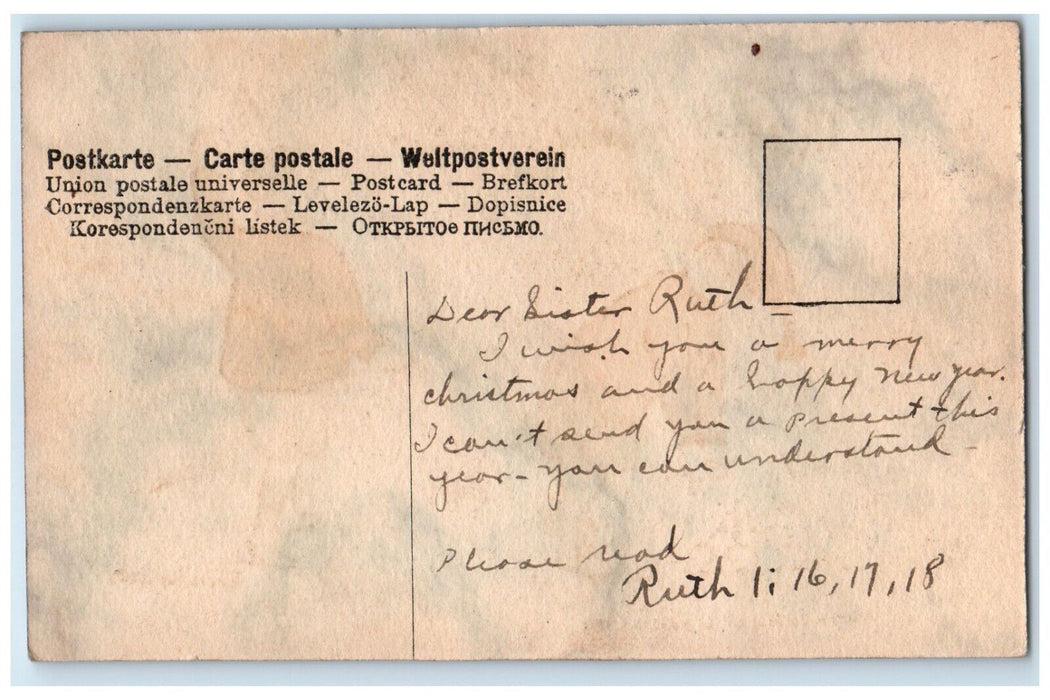 Postkarte — Carte postale — Weltpostverein
Union postale universelle — Postcard — Brefkort
Correspondenzkarte — Levelező-Lap — Dopisnice
Korespondenčni listek — Открытое письмо.
Dear Sister Ruth —
I wish you a merry
christmas and a happy new year.
I can't send you a present this
year - you can understand -
Please read
Ruth 1; 16, 17, 18